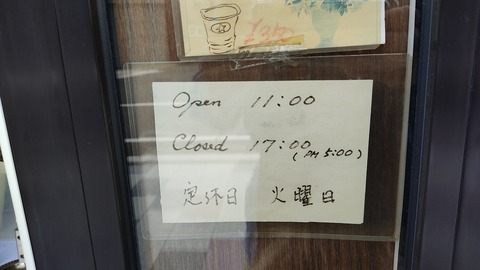 Open 11:00
Closed 17:00
(PM 5:00)
定休日 火曜日